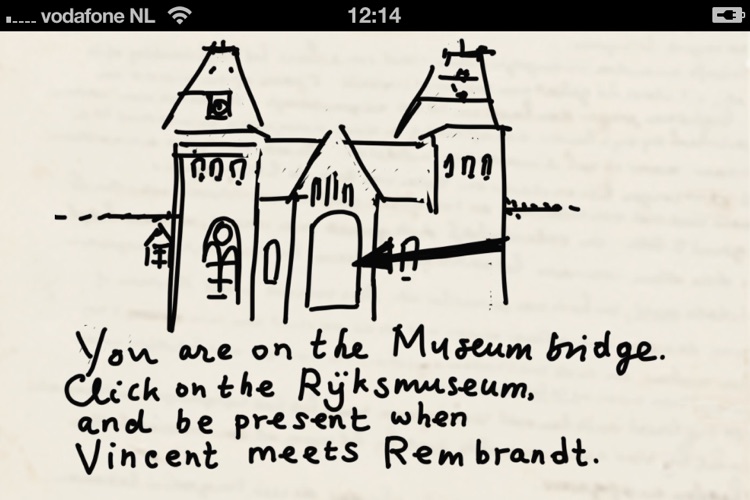 vodafone NL 12:14
You are on the Museum bridge.
Click on the Rÿksmuseum,
and be present when
Vincent meets Rembrandt.